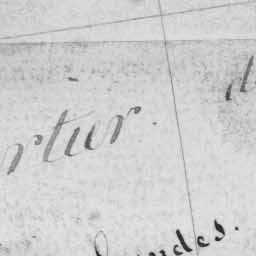 rtier. d
ndes.